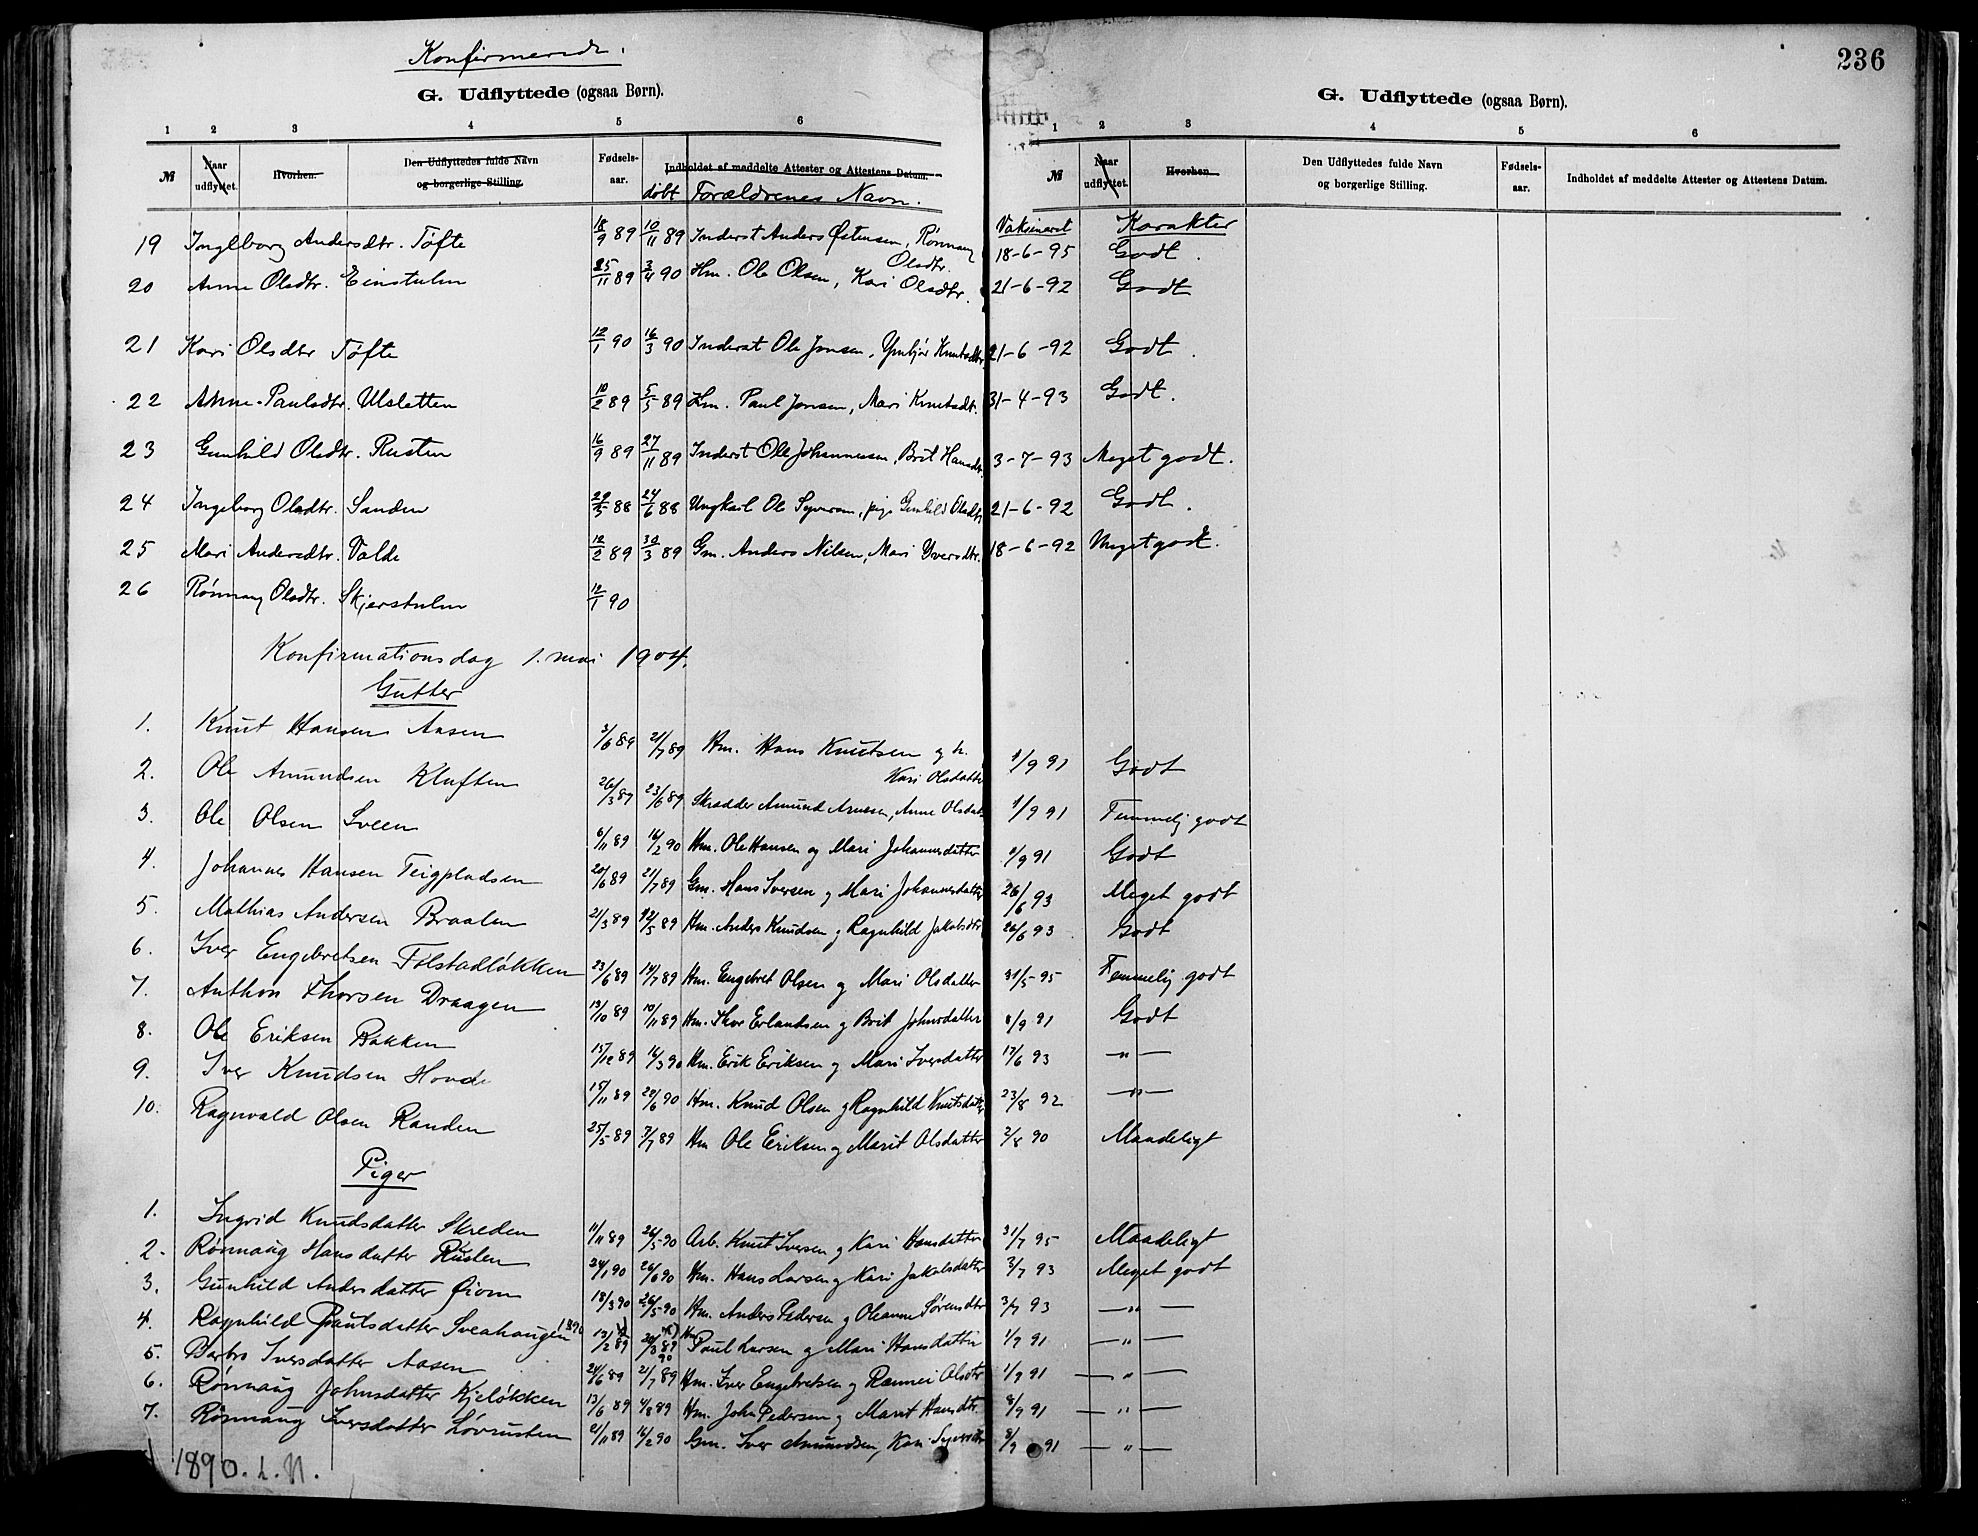 Konfirmerede.
236
G. Udflyttede (ogsaa Børn).
G. Udflyttede (ogsaa Børn).
1 2 3 4 5 6
1 2 3 4 5 6
№ Naar udflyttet. Hvorhen. Den Udflyttedes fulde Navn og borgerlige Stilling. Fødsels-aar. Indholdet af meddelte Attester og Attestens Datum.
døbt Forældrenes Navn.
№ Naar udflyttet. Hvorhen. Den Udflyttedes fulde Navn og borgerlige Stilling. Fødsels-aar. Indholdet af meddelte Attester og Attestens Datum.
Vaksineret Karakter
19 Ingeborg Andersdtr. Tøfte 18/9 89 10/11 89 Inderst Anders Østensen, Rønnaug Olsdtr. 18-6-95 Godt.
20 Anne Olsdtr. Einstulen 25/11 89 3/4 90 Hm. Ole Olsen, Kari Olsdtr. 21-6-92 Godt
21 Kari Olsdtr Tøfte 12/1 90 16/3 90 Inderst Ole Jonsen, Ynbjør Knutsdtr 21-6-92 Godt.
22 Anne Paulsdtr. Ulsletten 10/2 89 5/5 89 Hm. Paul Jonsen, Mari Knutsdt. 31-4-93 Godt.
23 Gunhild Olsdtr. Rusten 16/9 89 27/11 89 Inderst Ole Johannessen, Brit Hansdtr. 3-7-93 Meget godt.
24 Ingeborg Olsdtr. Sanden 29/5 88 24/6 88 Ungkarl Ole Syversen, pige Gunhild Olsdtr 21-6-92 Godt.
25 Mari Andersdtr. Valde 12/2 89 30/3 89 Gm. Anders Nilsen, Mari Yversdtr. 18-6-92 Meget godt.
26 Rønnaug Olsdtr. Skjerstulen 12/1 90
Konfirmationsdag 1. mai 1904.
Gutter
1. Knut Hansen Aasen 3/6 89 21/7 89 Hm. Hans Knutsen og h. Kari Olsdatter 1/9 91 Godt
2. Ole Amundsen Kluften 26/3 89 23/6 89 Skrædder Amund Arnesen, Anne Olsdat 1/9 91 Temmelig godt
3. Ole Olsen Sveen 6/11 89 16/2 90 Hm. Ole Hansen og Mari Johannesdatter 1/9 91 Godt
4. Johannes Hansen Teigpladsen 20/6 89 21/7 89 Gm. Hans Iversen og Mari Johannesdatter 26/6 93 Meget godt
5. Mathias Andersen Braalen 21/3 89 12/5 89 Hm. Anders Knudsen og Ragnhild Jakobsdtr 26/6 93 Godt
6. Iver Engebretsen Tolstadløkken 23/6 89 14/7 89 Hm. Engebret Olsen og Mari Olsdatter 31/5-95 Temmelig godt
7. Anthon Thorsen Draagen 13/10 89 10/11 89 Hm. Thor Erlandsen og Brit Johnsdatter 8/9 91 Godt
8. Ole Eriksen Bakken 15/12 89 16/3 90 Hm. Erik Eriksen og Mari Iversdatter 17/6 93 —"—
9. Iver Knudsen Hovde 15/11 89 29/6 90 Hm. Knud Olsen og Ragnhild Knutsdatter 23/8 92 —"—
10. Ragnvald Olsen Randen 25/5 89 7/7 89 Hm Ole Eriksen og Marit Olsdatter 2/8 90 Maadeligt
Piger
1. Ingrid Knudsdatter Skreden 11/11 89 26/5-90 Arb. Knut Iversen og Kari Hansdatter 31/7 95 Maadeligt
2. Rønnaug Hansdatter Ruslen 24/1 90 26/6 90 Hm. Hans Larsen og Kari Jakobsdatter 3/7 93 Meget godt
3. Gunhild Andersdatter Øiom 18/3 90 26/5-90 Hm. Anders Pedersen og Oleanne Sørensdtr 3/7 93 —"—
4. Ragnhild Paulsdatter Sveahaugen 1890 13/2 89 20/3 89 90 Hm Paul Larsen og Mari Hansdatter 1/9 91 —"—
5. Barbro Iversdatter Aasen 24/6 89 21/7 89 Hm. Iver Engebretsen og Rannei Olsdtr 1/9 91 —"—
6. Rønnaug Johnsdatter Kjeløkken 13/6 89 4/8 89 Hm. John Pedersen og Marit Hansdtr. 8/9 91 —"—
7. Rønnaug Iversdatter Løvrusten 21/11 89 16/2 90 Gm. Iver Amundsen, Kari Syversdtr 8/9 91 —"—
1890. L. N.